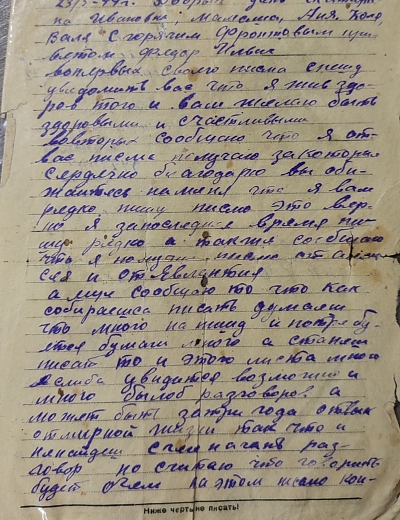 23/V-44г. Добрый день
на Ивановна, Мамаша, Аня, Коля
Валя С горячим фронтовым при-
ветом Федор Ильич
вопервых своего писма спешу
уведомить вас что я жив здо-
ров того и вам желаю быть
здоровыми и счастливыми
вовторых сообщаю что я от
вас писма получаю за которые
сердечно благодарю вы оби-
жаитесь на меня что я вам
редко пишу писмо это вер-
но я запоследнее время пи-
шу редко а также сообщаю
что я получил писмо от
сея и от Евлантия
а муж сообщаю то что как
собираешся писать думаеш
что много напишу и потребу-
ется бумаги много а станеш
писат то и этого листа много
еслиба увидится возможно и
много былоб разговоров а
может быть затри года отвык
от мирной жизни так что и
ненайдеш счего начать раз-
говор но считаю что говорить
будет очем на этом писмо кон-
Ниже черты не писать!